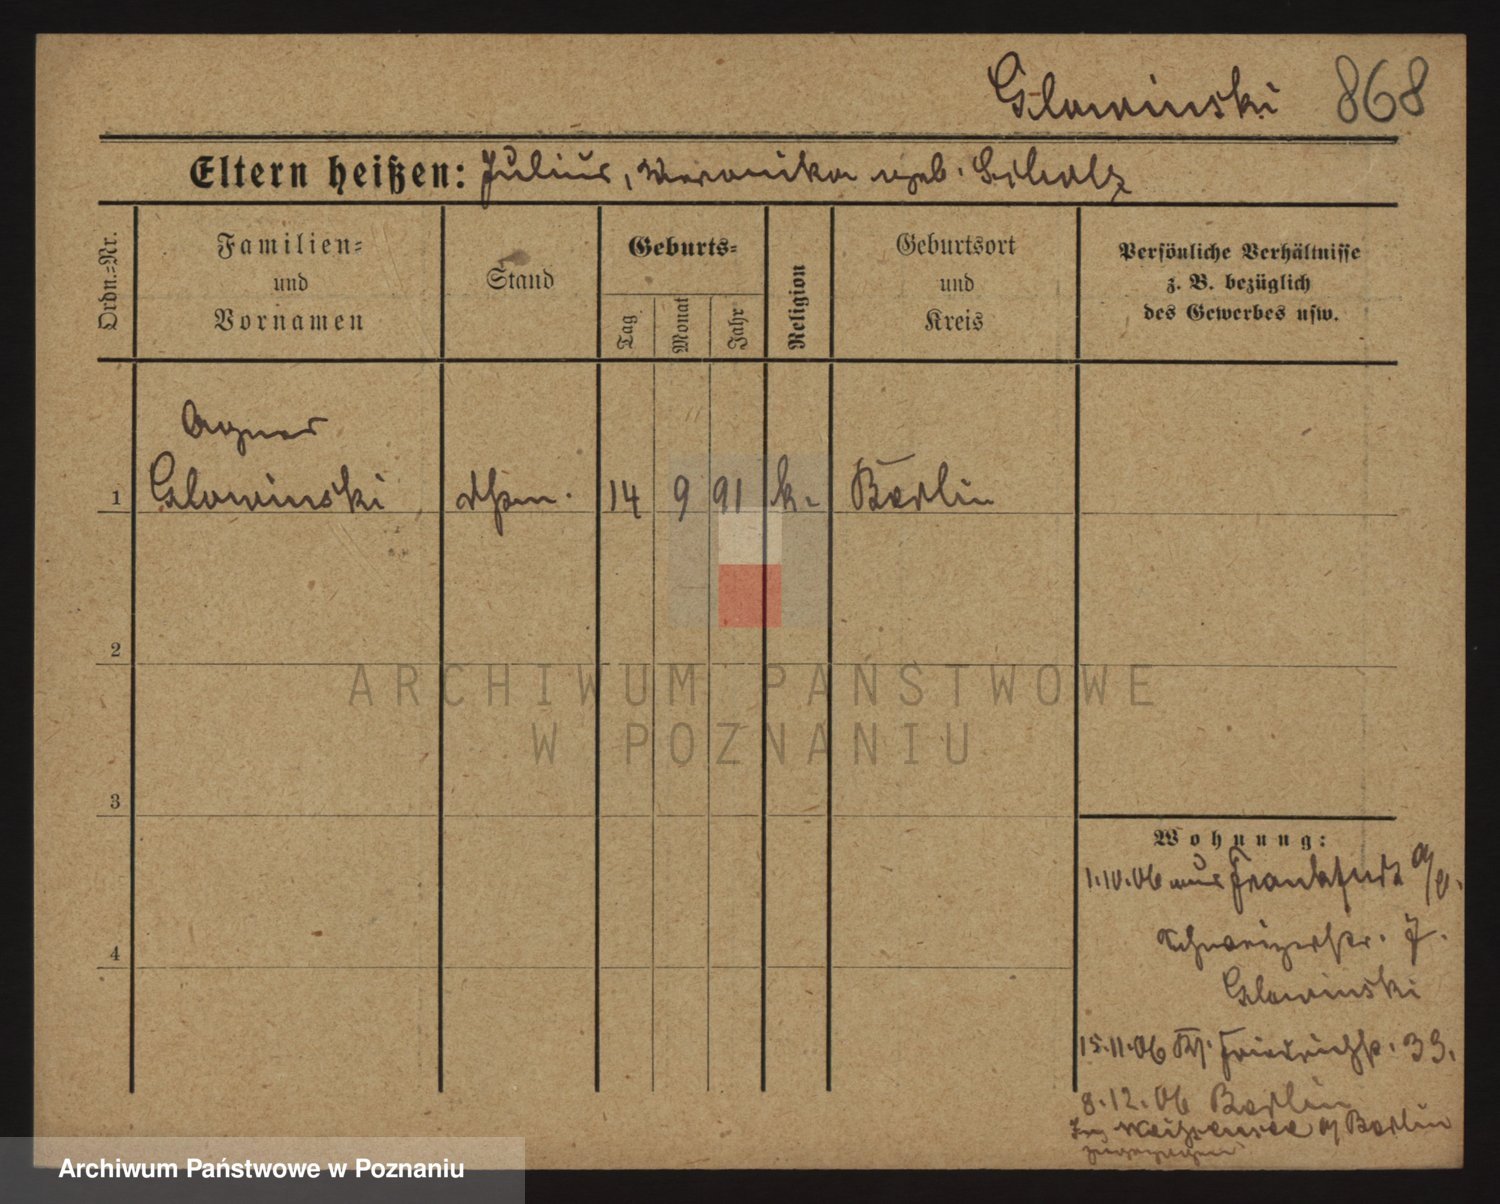 Glowinski 868
Eltern heißen: Julius, Veronika geb. Scholz
Ordn.=Nr.
Familien=
und
Vornamen
Stand
Geburts=
Tag
Monat
Jahr
Religion
Geburtsort
und
Kreis
Persönliche Verhältnisse
z. B. bezüglich
des Gewerbes usw.
Agnes
1 Glowinski 14 9 91 k. Berlin
2
3
4
Wohnung:
1.10.06 aus Frankfurt a/O.
Schweizerstr. 7.
Glowinski
15.11.06 Friedrichstr. 33.
8.12.06 Berlin
Weißensee b/ Berlin
ARCHIWUM PAŃSTWOWE
W POZNANIU
Archiwum Państwowe w Poznaniu